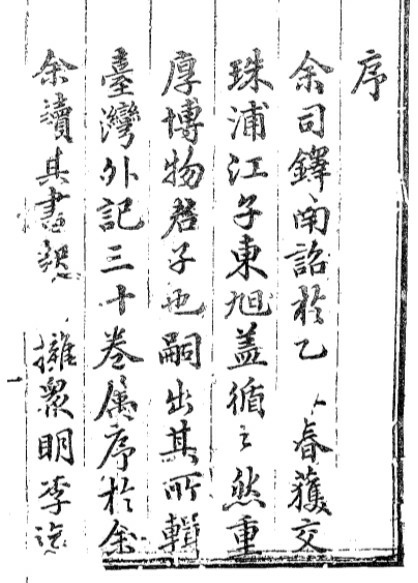 序
余司鐸南詔於乙 春獲交
珠浦江子東旭蓋循之然重
厚博物君子也嗣出其所輯
臺灣外記三十卷属序於余
余讀其書 擁眾明季